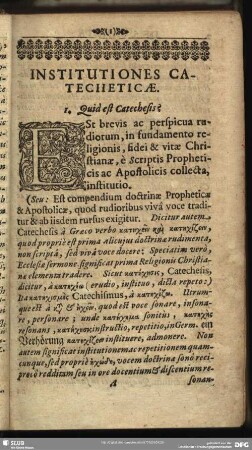 (1)
INSTITUTIONES CA-
TECHETICÆ.
1. Quid est Catechesis?
ESt brevis ac perspicua ru-
diorum, in fundamento re-
ligionis, fidei & vitæ Chri-
stianæ, è Scriptis Propheti-
cis ac Apostolicis collecta,
institutio.
(Seu: Est compendium doctrinæ Propheticæ
& Apostolicæ, quod rudioribus vivâ voce tradi-
tur & ab iisdem rursus exigitur. Dicitur autem
Catechesis à Græco verbo κατηχεῖν καὶ κατηχίζειν,
quod propriè est prima alicujus doctrinæ rudimenta,
non scriptâ, sed vivâ voce docere: Speciatim verò,
Ecclesiæ sermone significat prima Religionis Christia-
næ elementa tradere. Sicut κατήχησις, Catechesis,
dicitur, à κατηχέω (erudio, instituo, dicta repeto:)
Ita κατηχισμὸς Catechismus, à κατηχίζω. Utrum-
que est à κζ & ἠχῶν, quod est voce sonare, insona-
re, personare; unde κατήχημα sonitus, κατηχὴς
resonans, κατήχησις instructio, repetitio, in Germ. ein
Verhörung κατηχίζειν instituere, admonere. Non
autem significat institutionem ac repetitionem quam-
cunque, sed propriè ἠχώδη, vocem doctrinæ sonô reci-
proco redditum seu in ore docentium & discentium re-
A
sonan-
SLUB
DFG